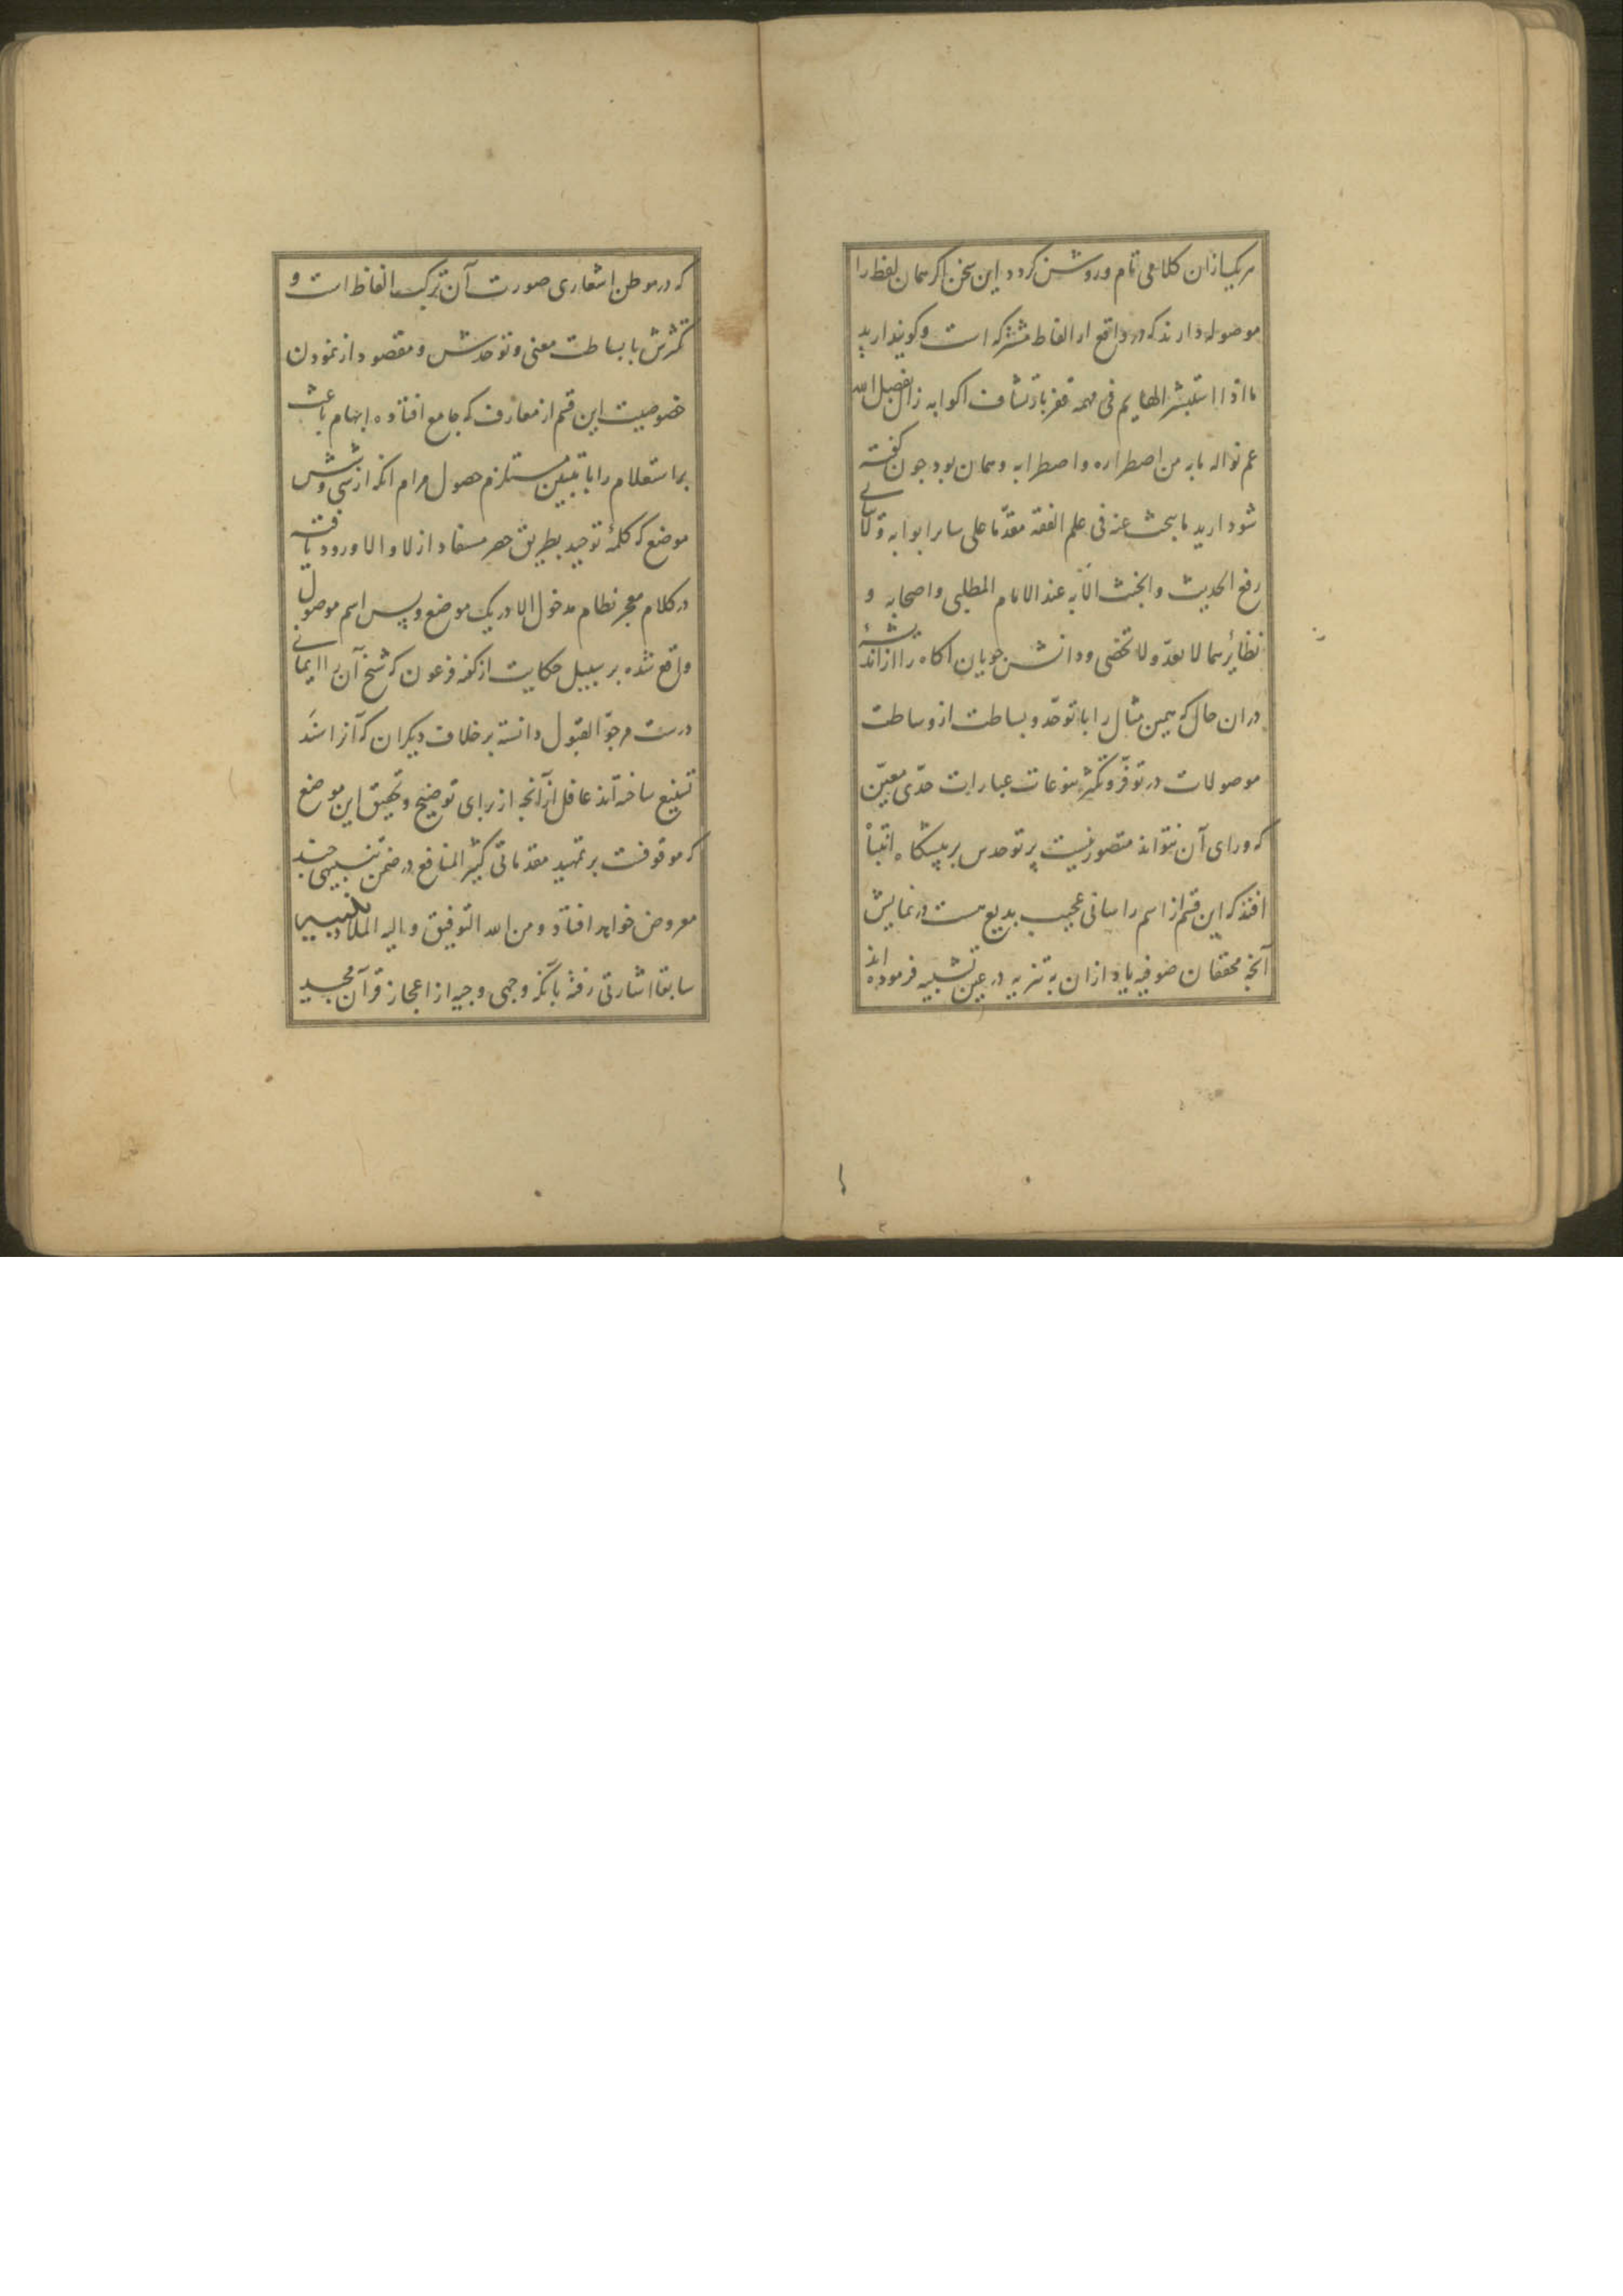 هر یک از ان کلامی تام و روشن کردد این سخن اکر همان لفظ را
موصوله دارند که در واقع از الفاظ مشترکه است و کویند ارید
ما اذا استبشر الهایم فی مهمه قفر بارتشاف اکوابه زال بفضل الله
عم نواله ما به من اضطراره واضطرابه و همان بود چون کفته
شود ارید ما یبحث عنه فی علم الفقه مقدّما علی سایر ابوابه و
رفع الحدیث والخبث الّا به عند الامام المطلبی واصحابه و
نظایر هما لا یعدّ ولا تحصی و دانش جویان آکاه را از
دران حال که همین مثال را با توحّد و بساطت از وساطت
موصولات در توفّر و تکثّر تنوعات عبارات حدّی معیّن
که ورای آن نتواند متصور نیست پرتو حدس بر پیشکاه انتباه
افتد که این قسم از اسم را شانی عجیب بدیع هست در نمایش
آنچه محققان صوفیه یاد ازان به تنزیه در عین تشبیه فرموده اند
که در موطن اشعاری صورت آن ترکیب الفاظ است و
تکثرش با بساطت معنی و توحدش و مقصود از نمودن
خصوصیت این قسم از معارف که جامع افتاده ابهام باعث
بر استعلام را با تبیین مستلزم حصول مرام انکه از سی و شش
موضع که کلمهٔ توحید بطریق حصر مستفاد از لا و الا ورود یافته
در کلام معجز نظام مدخول الا در یک موضع و بس اسم موصول
واقع شده بر سبیل حکایت از کفته فرعون که شیخ آن را ایمانی
درست مرجوّ القبول دانسته بر خلاف دیکران که آنرا اشدّ
تشنیع ساخته‌اند غافل از آنچه از برای توضیح و تحقیق این موضع
که موقوفست بر تمهید مقدماتی کثیر المنافع در ضمن تنبیهی چند
معروض خواهد افتاد و من الله التوفیق والیه الملاذ تنبیه
سابقا اشارتی رفته بآنکه وجهی وجیه از اعجاز قرآن مجید